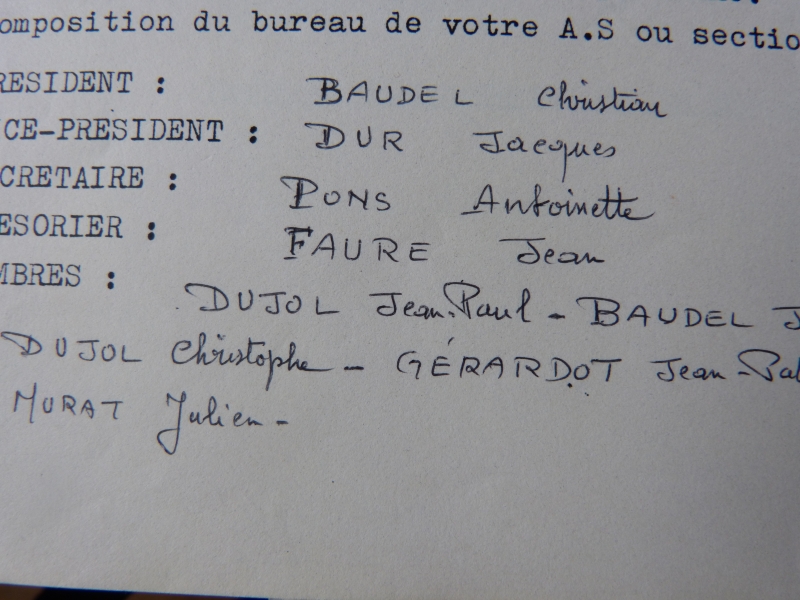 omposition du bureau de votre A.S ou sectio
RESIDENT : BAUDEL Christian
CE-PRESIDENT : DUR Jacques
CRETAIRE : PONS Antoinette
ESORIER : FAURE Jean
MBRES :
DUJOL Jean-Paul - BAUDEL J
DUJOL Christophe - GÉRARDOT Jean-Pa
MURAT Julien -